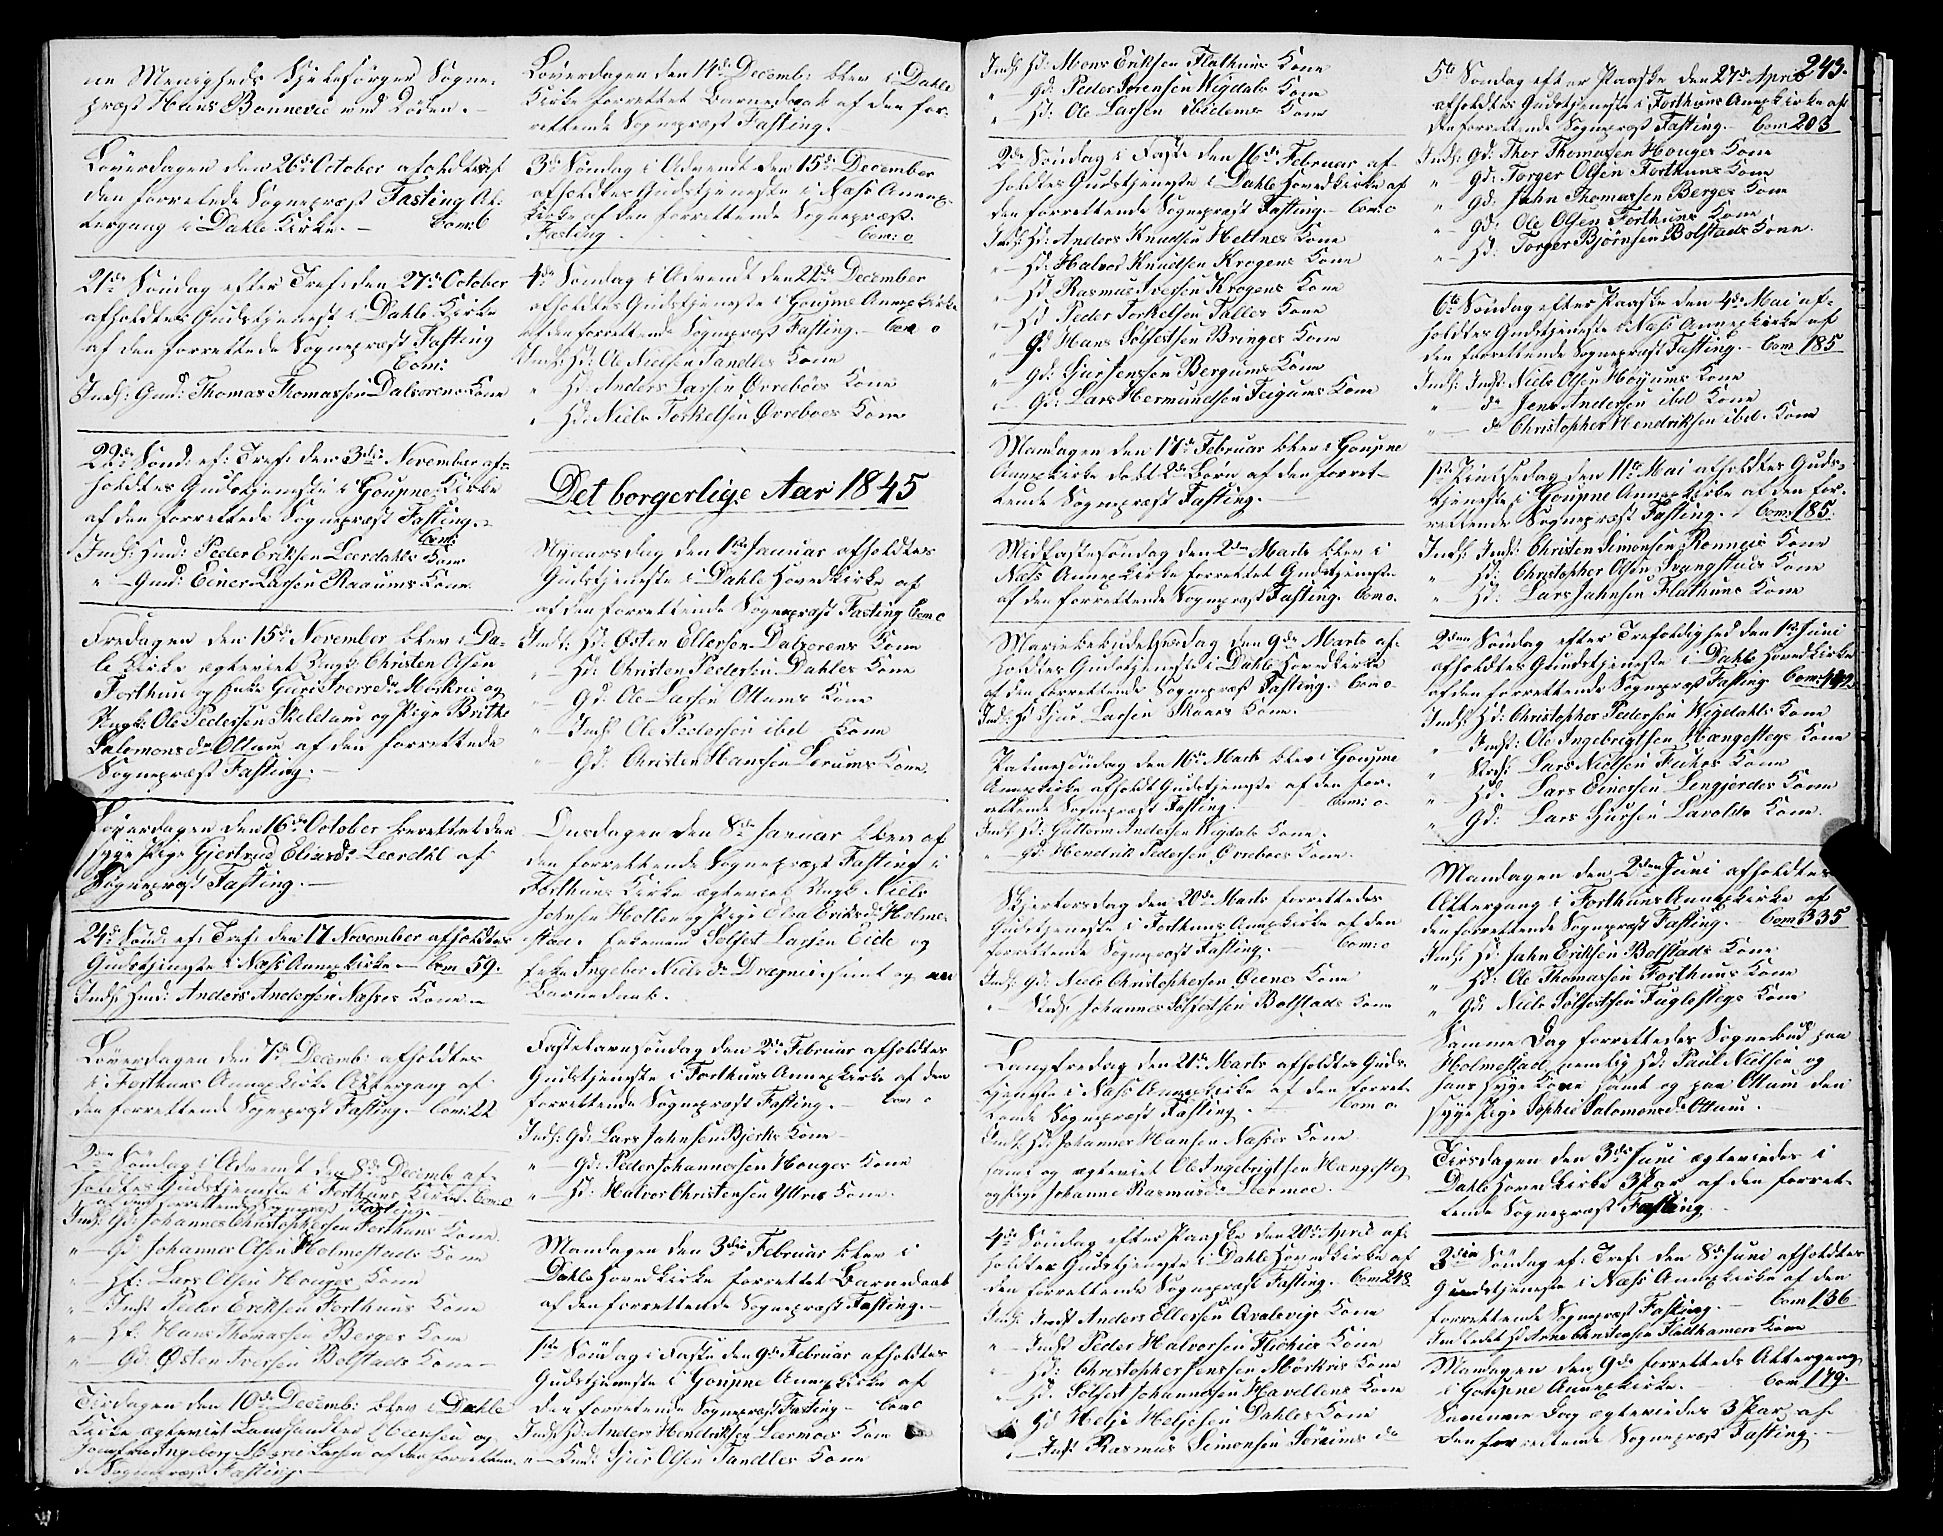 ne Menigheds Sjelesörger Sogne-
præst Hans Bonnevie ved Döden.
Löverdagen den 26de October afholdtes af
den forretende Sognepræst Fasting Al-
tergang i Dahle Kirke. — Com: 6
21de Söndag efter Tref: den 27de October
afholdtes Gudstjeneste i Dahle Kirke
af den forrettede Sognepræst Fasting
Com:
Inds: Gmd: Thomas Thomassen Dalsörens Kone
22de Sönd: ef: Tref: den 3die November af-
holdtes Gudstjeneste i Goupne Kirke
af den forrettede Sognepræst Fasting.
Com:
Inds: Hmd: Peder Eriksen Leerdahls Kone
" — Gmd: Einer Larsen Raaums Kone
Fredagen den 15de November blev i Da-
le Kirke ægteviet Ungk: Christen Olsen
Forthun og Enke Guri Iversdr Mörkrie og
Ungk: Ole Pedersen Skildame og Pige Brithe
Salomonsdr Ottum af den forrettede
Sognepræst Fasting. —
Löverdagen den 16de October berettet den
syge Pige Gjertrud Eliasdr Leerdahl af
Sognepræst Fasting. —
24de Sönd: ef: Tref: den 17 November afholdtes
Gudstjeneste i Næss Annexkirke — Com 59.
Inds: Hmd: Anders Andersen Næsses Kone —
Löverdagen den 7de Decemb: afholdtes
i Forthuns Annexkirke Altergang af
den forrettende Sognepræst Fasting. — Com: 22
2den Söndag i Advent den 8de Decemb: af-
holdtes Gudstjeneste i Forthuns Kirke Com: 0
af den forrettende Sognepræst Fasting. —
Inds: Gd: Johannes Christophersen Forthuns Kone
" — Gd: Johannes Olsen Holmestads Kone
" — Hd: Lars Olsen Houges Kone
" — Inds: Peder Eriksen Forthuns Kone
" — Hd: Hans Thomassen Berges Kone
" — Gd: Østen Iversen Bolstads Kone —
Tirsdagen den 10de Decemb: blev i Dahle
Kirke ægteviet Landhandler Hansen og
Jomfru Ingeborg Marie Larsen af den forretten-
de Sognepræst Fasting. —
Löverdagen den 14de Decemb: blev i Dahle
Kirke forrettet Barnedaab af den for-
rettende Sognepræst Fasting.
3de Söndag i Advendt den 15de December
afholdtes Gudstjeneste i Næss Annex-
kirke af den forrettende Sognepræst
Fasting . . . . Com: 0
4de Söndag i Advendt den 22de December
afholdtes Gudstjeneste i Goupne Annexkirke
af den forrettende Sognepræst Fasting. — Com 0
Inds: Hd: Ole Nielsen Sandles Kone
" — Hd: Anders Larsen Øvreböes Kone
" — Hd: Niels Torkelsen Øvreboes Kone
Det borgerlige Aar 1845
Nyaarsdag den 1ste Januar afholdtes
Gudstjeneste i Dahle Hovedkirke af
af den forrettende Sognepræst Fasting Com 0
Inds: Hd: Østen Ellersen Dalsörens Kone
" — Hd: Christen Pedersen Dahles Kone
" — Gd: Ole Larsen Ottums Kone
" — Inds: Ole Pedersen ibid Kone
" — Gd: Christen Hansen Lerums Kone
Onsdagen den 8de Januar blev af
den forrettende Sognepræst Fasting i
Forthuns Kirke ægteviet Ungk: Niels
Johnsen Holten og Pige Elsa Eriksdr Holme-
stad, Enkemand Solfest Larsen Eide og
Enke Ingeber Nielsdr Drægnei, samt og en
Barnedaab.
Fastelavnsöndag den 2de Februar afholdtes
Gudstjeneste i Forthuns Annexkirke af den
forrettende Sognepræst Fasting. — Com 0
Inds: Gd: Lars Johnsen Bjerks Kone —
" — Gd: Peder Johannessen Houges Kone
" — Hd: Halvor Christensen Yttries Kone.
Mandagen den 3die Februar blev i
Dahle Hovedkirke forrettet Barnedaab
af den forrettende Sognepræst Fasting. —
1ste Söndag i Faste den 9de Februar afholdtes
Gudstjeneste i Goupne Annexkirke af
den forrettende Sognepræst Fasting — Com 0
Inds: Hd: Anders Hendriksen Leermoes Kone
" — Gmd: Siur Olsen Sandles Kone
Inds: Hd: Mons Eriksen Flathuns Kone
" — Gd: Peder Sörensen Wigdals Kone
" — Hd: Ole Larsen ibidems Kone
2de Söndag i Faste den 16de Februar af-
holdtes Gudstjeneste i Dahle Hovedkirke af
den forrettende Sognepræst Fasting. — Com: 0
Inds: Hd: Anders Knudsen Heltnes Kone
" — Hd: Halvor Knudsen Krogens Kone
" — Hd: Rasmus Iversen Krogens Kone
" — Hd: Peder Torkelsen Talles Kone
" — Gd: Hans Solfestsen Bringes Kone
" — Gd: Siur Jenssen Bergums Kone
" — Gd: Lars Hermundsen Feigums Kone
Mandagen den 17de Februar blev i Goupne
Annexkirke döbt 2de Börn af den forret-
tende Sognepræst Fasting. —
Midfastesöndag den 2den Marts blev i
Næss Annexkirke forrettet Gudstjeneste
af den forrettende Sognepræst Fasting. Com 0.
Mariebebudelsesdag den 9de Marts af-
holdtes Gudstjeneste i Dahle Hovedkirke
af den forrettende Sognepræst Fasting. — Com 0 —
Inds: Hd: Siur Larsen Moens Kone. —
Palmesöndag den 16de Marts blev i Goupne
Annexkirke afholdt Gudstjeneste af den for-
rettende Sognepræst Fasting. Com: 0.
Inds: Hd: Guttorm Andersen Wigdals Kone.
" — Gd: Hendrik Pedersen Øvreboes Kone.
Skjertorsdag den 20de Marts forrettedes
Gudstjeneste i Forthuns Annexkirke af den
forrettende Sognepræst Fasting. — Com: 0
Inds: Gd: Niels Christophersen Øienes Kone
" — Inds: Johannes Solfestsen Bolstads Kone
Langfredag den 21de Marts afholdtes Guds-
tjeneste i Næss Annexkirke af den forret-
tende Sognepræst Fasting. — Com 0.
Inds: Hd: Johannes Hansen Næsses Kone
samt og ægteviet Ole Ingebrigtsen Hængesteg
og Pige Johanne Rasmusdr Leermoe. —
4de Söndag efter Paaske den 20de April af-
holdtes Gudstjeneste i Dahle Hovedkirke af
den forrettende Sognepræst Fasting. Com 248.
Inds: Inds: Anders Ellersen Qvalevigs Kone
" — Inds: Peder Halvorsen Flickies Kone
" — Hd: Christopher Jenssen Mörkries Kone
" — Hd: Solfest Johannesen Havellens Kone
" — Gd: Helje Heljesen Dahles Kone
" — Inds: Rasmus Simonsen Söreims do
243.
5te Söndag efter Paaske den 27de April
afholdtes Gudstjeneste i Forthuns Annexkirke af
den forrettende Sognepræst Fasting. — Com 203
Inds: Gd: Thor Thomasen Houges Kone
" — Gd: Torger Olsen Forthuns Kone
" — Gd: John Thomassen Berges Kone
" — Gd: Ole Olsen Forthuns Kone
" — Hd: Torger Bjørnsen Bolstads Kone.
6te Söndag efter Paaske den 4de Mai af-
holdtes Gudstjeneste i Næss Annexkirke af
den forrettende Sognepræst Fasting. — Com 185
Inds: Inds: Niels Olsen Höyums Kone
" do Jens Andersen ibid Kone
" — do Christopher Hendriksen ibid. Kone
1ste Pintsedag den 11te Mai afholdtes Guds-
tjeneste i Goupne Annexkirke af den for-
rettende Sognepræst Fasting. — Com: 185.
Inds: Inds: Christen Simonsen Ronneis Kone
" Hd: Christopher Olsen Prangstais Kone
" — Hd: Lars Johnsen Flathuns Kone
2den Söndag efter Trefoldighed den 1ste Juni
afholdtes Gudstjeneste i Dahle Hovedkirke
af den forrettende Sognepræst Fasting Com:
Inds: Hd: Christopher Pedersen Wigdahls Kone
" — Inds: Ole Ingebrigtsen Hængestegs Kone
" — Inds: Lars Nielsen Fuhrs Kone
" Hd: Lars Einersen Lingjerdes Kone
" Gd: Lars Siursen Lavolds Kone.
Mandagen den 2den Juni afholdtes
Altergang i Forthuns Annexkirke af
den forrettende Sognepræst Fasting. Com 335
Inds: Hd: John Eriksen Bolstads Kone
" — Hd: Ole Thomassen Forthuns Kone
" Gd: Niels Solfestsen Fuglestegs Kone
Samme Dag forrettedes Sognebud paa
Holmestad, nemlig Hd: Paul Nielsen og
hans syge Kone samt og paa Ottum den
syge Pige Sophie Salomonsdr Ottum.
Tirsdagen den 3die Juni ægteviedes i
Dahle Hovedkirke 3 Par af den forret-
tende Sognepræst Fasting.
3die Söndag ef: Tref: den 8de Juni afholdtes
Gudstjeneste i Næss Annexkirke af den
forrettende Sognepræst Fasting. — Com 136
Indledet Hd: Arne Christensen Flathamers Kone
Mandagen den 9de forrettedes Altergang
i Goupne Annexkirke. — Com 179.
Samme Dag ægteviedes 3 Par af
den forrettende Sognepræst Fasting. —